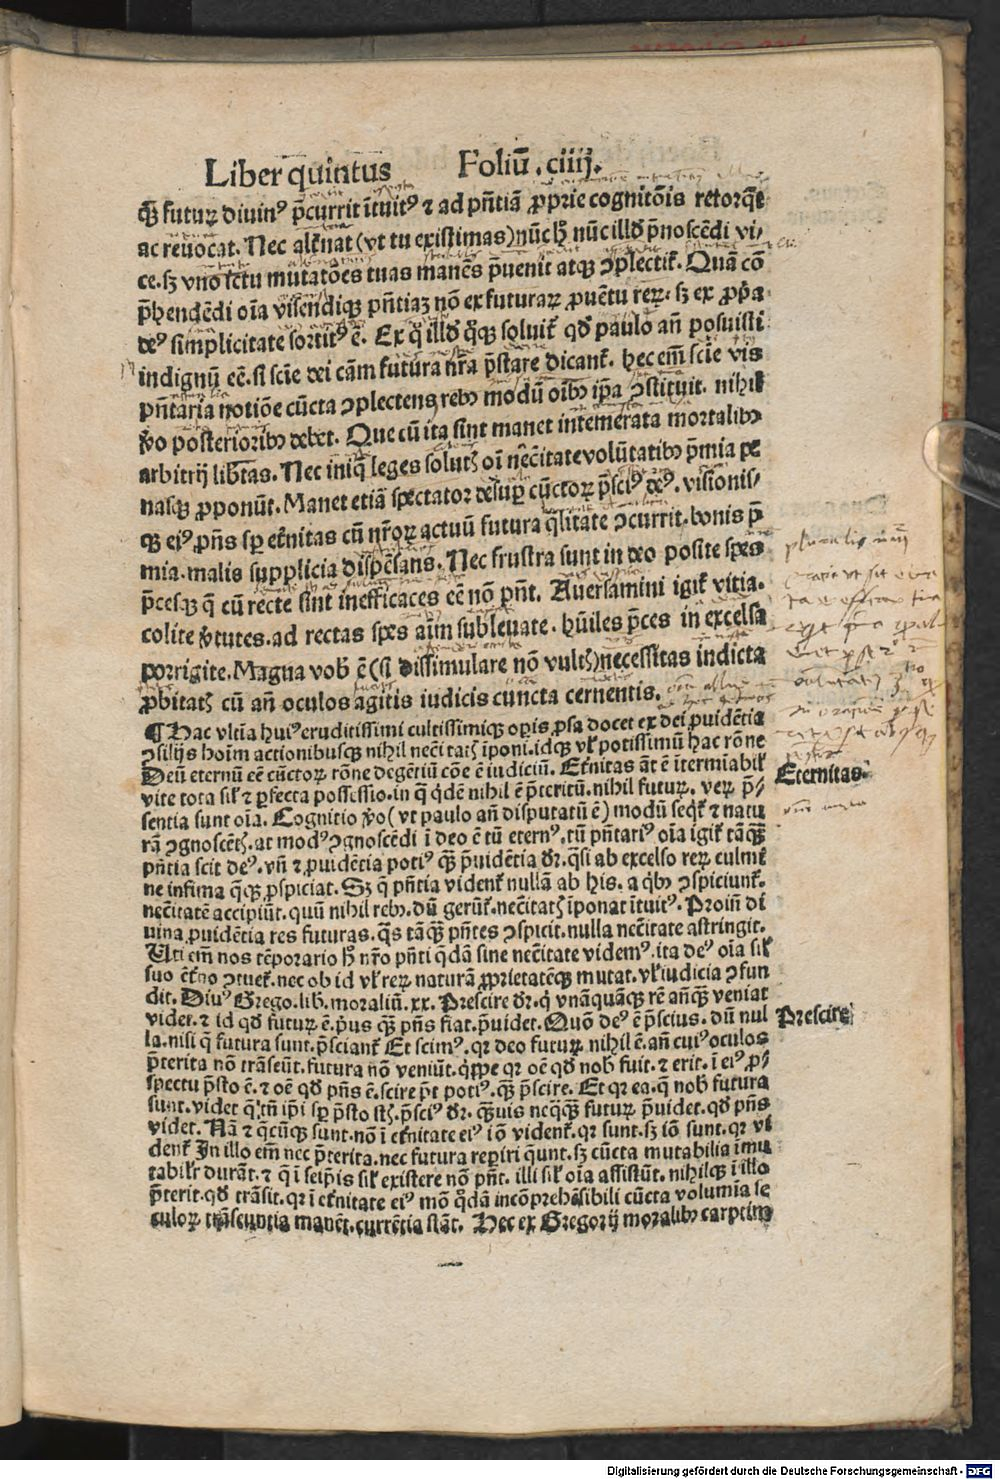 Liber quintus Foliū .ciiij.
q̄ꝫ futuꝝ diuinꝰ p̄currit ītuitꝰ ⁊ ad pñtiā ꝓprie cognitōis retorq̄t
ac reuocat. Nec alt̄nat (vt tu existimas) nūc hͦ nūc illḋ p̄noscēdi vi/
ce. sꝫ vno ictu mutatōes tuas manēs p̄uenit atqꝫ ꝯplectit̃. Quā cō
p̄hendēdi oīa visendiqꝫ pñtiaꝫ nō ex futuraꝝ ꝓuētu reꝝ. sꝫ ex ꝓp̃a
deꝰ simplicitate sortitꝰ ē. Ex q̊ illḋ q̊qꝫ soluit̃ qḋ paulo añ posuisti
indignū eē. si sciē dei cām futura nr̄a p̄stare dicant̃. hec em̄ sciē vis
pñtaria notiōe cūcta ꝯplectens rebꝰ modū oībꝰ ip̄a ꝯstituit. nihil
v̊o posterioribꝰ debet. Que cū ita sint manet intemerata mortalibꝰ
arbitrij lib̄tas. Nec iniq̄ leges solutꝭ oī nēcitate volūtatibꝰ p̄mia pe
nasqꝫ ꝓponūt. Manet etiā spectator desup̄ cūctoꝝ p̄sciꝰ deꝰ. visionis/
qꝫ eiꝰ p̄ñs sp̄ et̄nitas cū nr̄oꝝ actuū futura q̄litate ꝯcurrit. bonis p̄
mia. malis supplicia dispēsans. Nec frustra sunt in deo posite spes
p̄cesqꝫ q̄ cū recte sint inefficaces eē nō pñt. Auersamini igit̃ vitia.
colite v̓tutes. ad rectas spes aīm subleuate. hūiles p̄ces in excelsa
porrigite. Magna vob̄ ē (si dissimulare nō vultꝭ) necessitas indicta
ꝓbitatꝭ cū añ oculos agitis iudicis cuncta cernentis.
¶ Hac vltīa huiꝰ eruditissimi cultissimiqꝫ op̄is ꝓsa docet ex dei ꝓuidētia
ꝯsilijs hoīm actionibusqꝫ nihil nec̄itatꝭ īponi. idqꝫ vl̓ potissimū hac rōne
Deū eternū eē cūctoꝝ rōne degētiū cōe ē iudiciū. Et̄nitas āt ē īterm̄iabil̓
vite tota sil̓ ⁊ ꝑfecta possessio. in q̄ q̊dē nihil ē p̄teritū. nihil futuꝝ. veꝝ p̄/
sentia sunt oīa. Cognitio v̊o (vt paulo añ disputatū ē) modū seqt̃ ⁊ natu
rā ꝯgnoscētꝭ. at modꝰ ꝯgnoscēdi ī deo ē tū eternꝰ. tū pñtariꝰ oīa igit̃ tāq̄ꝫ
pñtia scit deꝰ. vñ ⁊ ꝓuidētia potiꝰ q̄ꝫ p̄uidētia dr̄. q̄si ab excelso reꝝ culmī
ne infima q̄qꝫ ꝓspiciat. Sꝫ q̄ pñtia vident̃ nullā ab his. a q̊bꝰ ꝯspiciunt̃.
nec̄itatē accipiūt. quū nihil rebꝰ. dū gerūt̃. nec̄itatꝭ īponat ītuitꝰ. Proiñ di
uina ꝓuidētia res futuras. q̄s tāq̄ꝫ pñtes ꝯspicit. nulla nec̄itate astringit.
Uti em̄ nos tēporario hͦ nr̄o pñti q̄dā sine nec̄itate videmꝰ. ita deꝰ oīa sil̓
suo et̄no ꝯtuet̃. nec ob id vl̓ reꝝ naturā ꝓprietatēqꝫ mutat. vl̓ iudicia ꝯfun
dit. Diuꝰ Grego. lib. moraliū. xx. Prescire dr̄. q̊ vnāquāqꝫ rē añq̄ꝫ veniat
videt. ⁊ id qḋ futuꝝ ē. p̄us q̄ꝫ pñs fiat. p̄uidet. Quō deꝰ ē p̄scius. dū nul
la. nisi q̄ futura sunt. p̄sciant̃ Et scimꝰ. qꝛ deo futuꝝ nihil ē. añ cuiꝰ oculos
p̄terita nō trāseūt. futura nō veniūt. q̊ppe qꝛ oē qḋ nob̄ fuit. ⁊ erit. ī eiꝰ ꝓ/
spectu p̄sto ē. ⁊ oē qḋ pñs ē. scire p̄t potiꝰ. q̄ꝫ p̄scire. Et qꝛ ea. q̄ nob̄ futura
sunt. videt q̄ tñ ip̄i sp̄ p̄sto st̄. p̄sciꝰ dr̄. q̄ꝫuis neq̄q̄ꝫ futuꝝ p̄uidet. qḋ pñs
videt. Nā ⁊ q̄cūqꝫ sunt. nō ī et̄nitate eiꝰ iō vident̃. qꝛ sunt. sꝫ iō sunt. qꝛ vi
dent̃ In illo em̄ nec p̄terita. nec futura reperiri q̄unt. sꝫ cūcta mutabilia īmu
tabilr̄ durāt. ⁊ q̄ ī seip̄is sil̓ existere nō pñt. illi sil̓ oīa assistūt. nihilqꝫ ī illo
p̄terit. qḋ trāsit. qꝛ ī et̄nitate eiꝰ mō q̊dā incōprehēsibili cūcta volumīa se
culoꝝ trāseuntia manēt. currētia stāt. Hec ex Gregorij moralibꝰ carptim
Eternitas.
Prescire
Digitalisierung gefördert durch die Deutsche Forschungsgemeinschaft - DFG